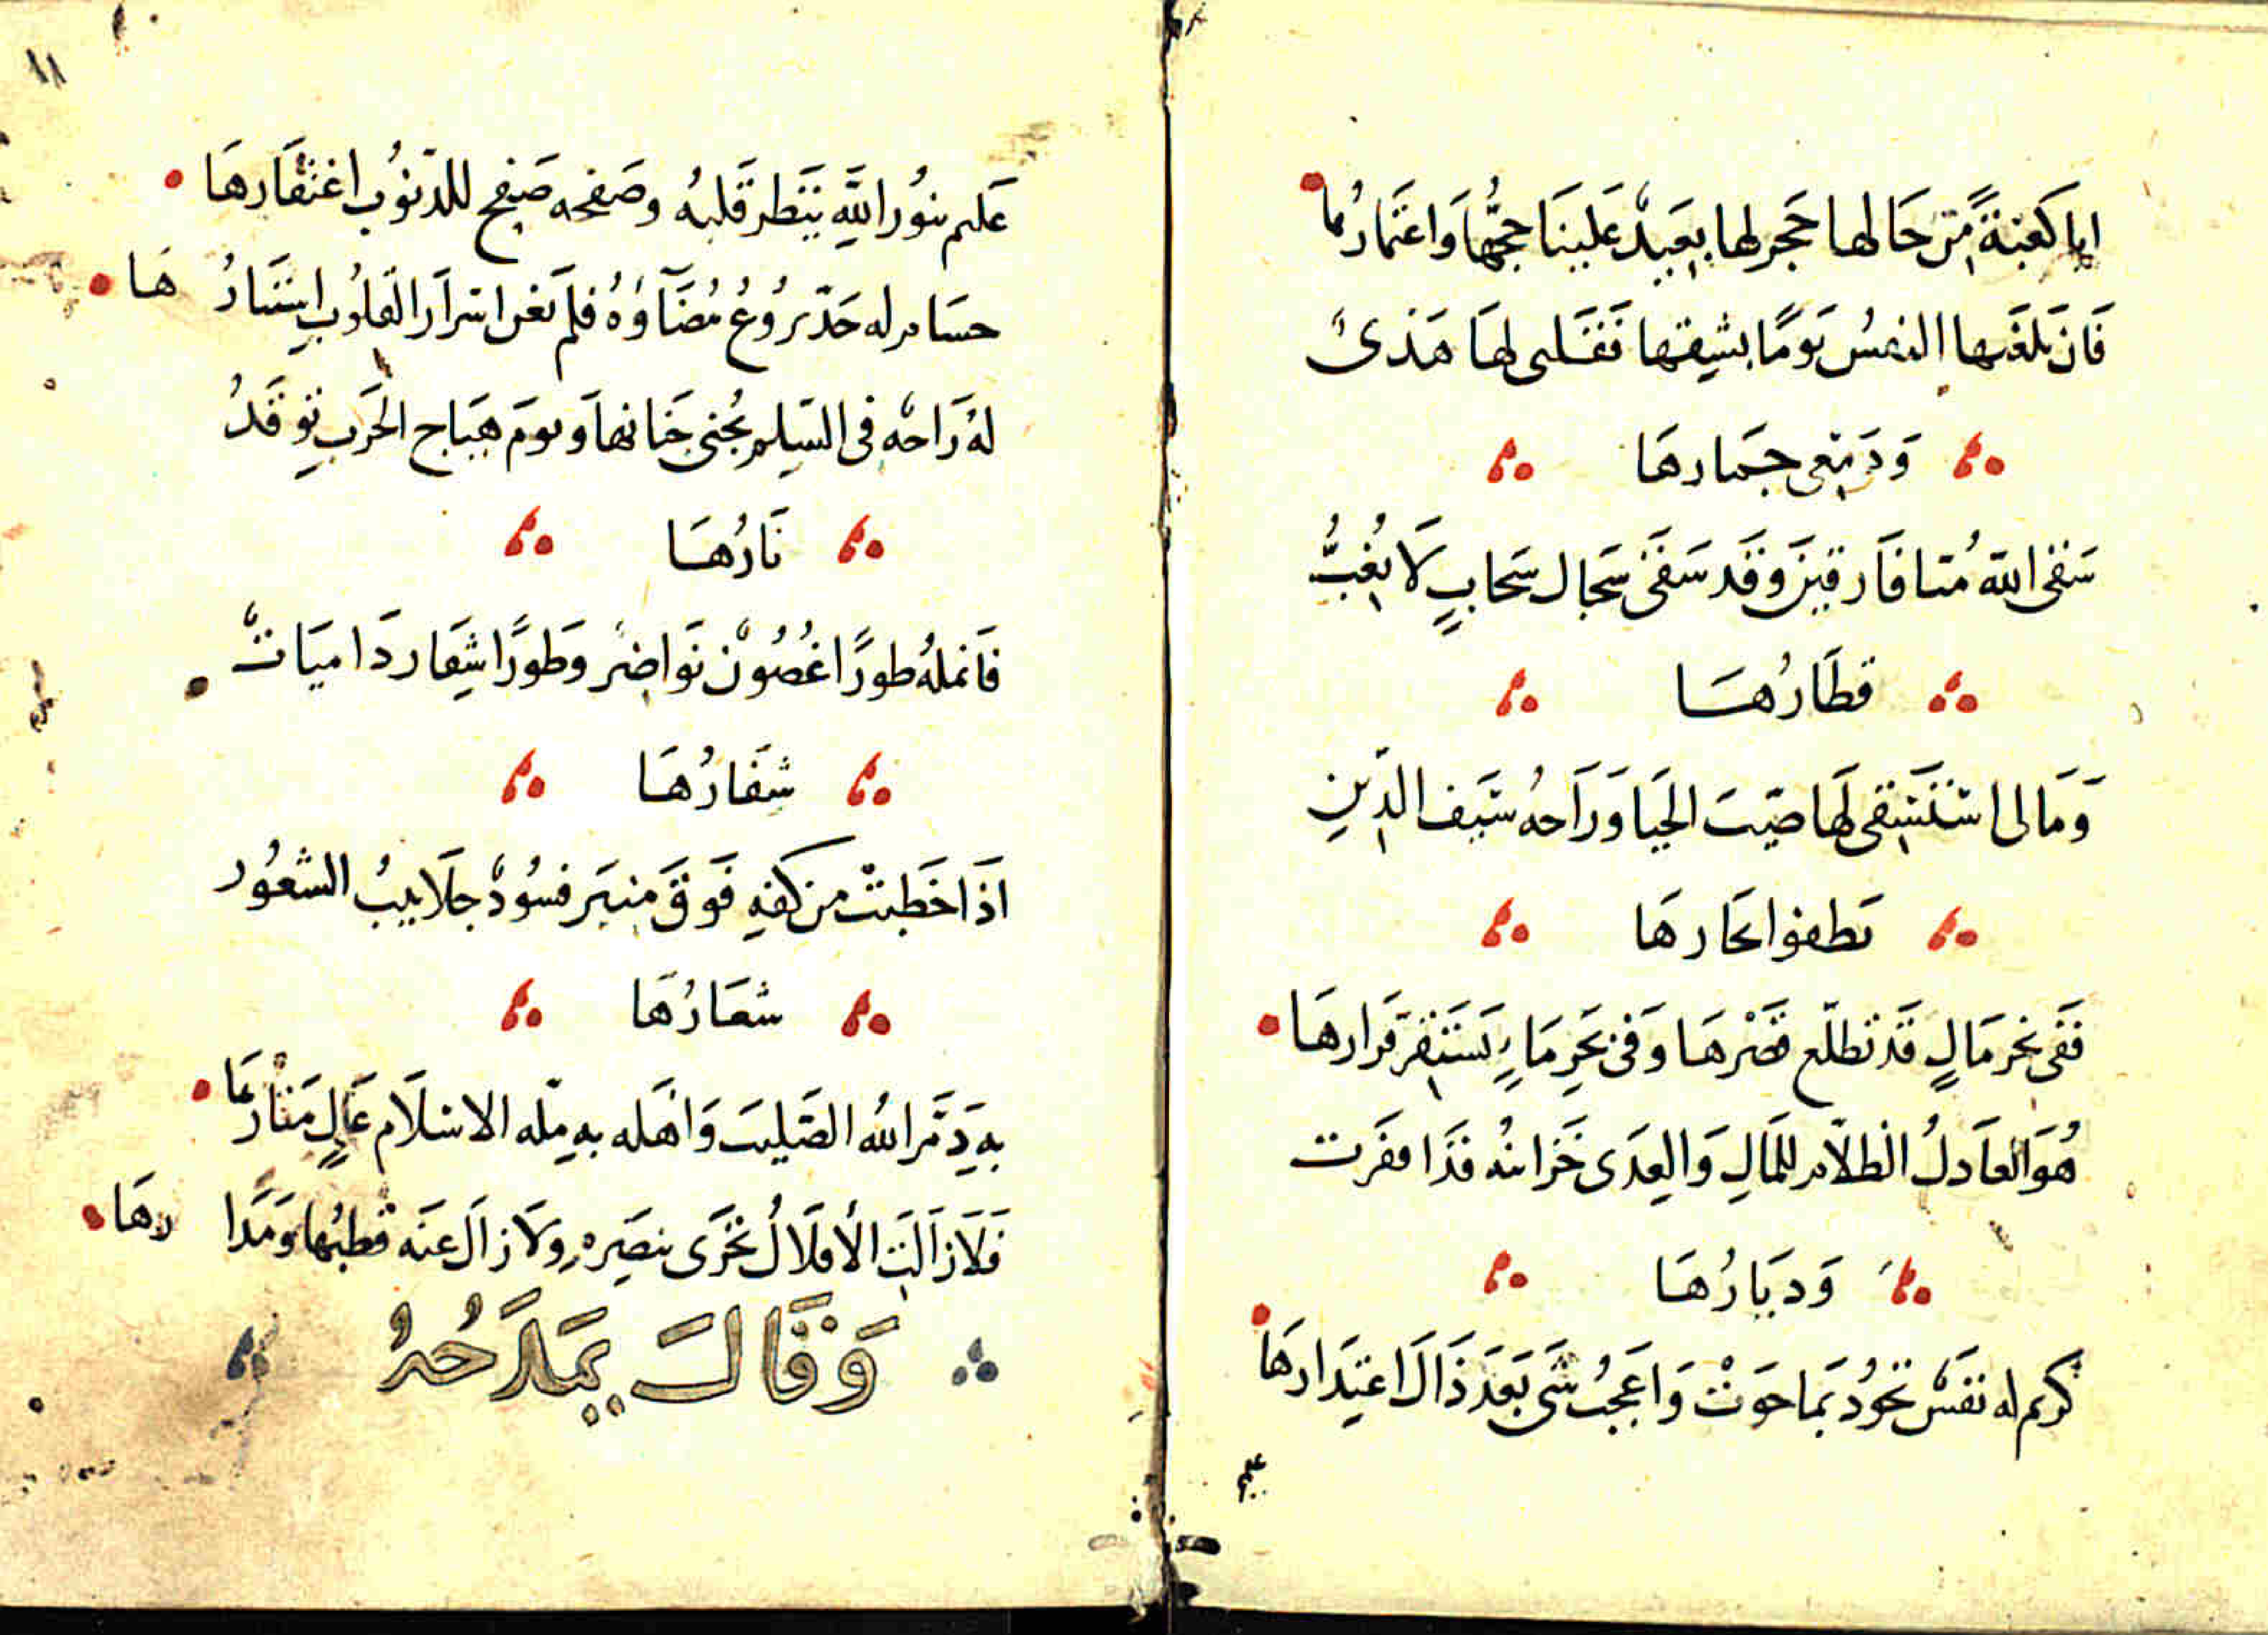 ايا كَعْبَةً مِّنْ خَالها حَجر لها بعَيدٌ عَلينَا حجُّهَا وَاعتمَارُها
فَان بَلغَتها النفسُ يَومًا بشِقها فَقَلبى لهَا هَدْىٌ
وَدَمْعى جمَارهَا
سَقى الله مُيّا فَارقين وَقَد سَقَى سَجَال سَحابٍ لَا يُغِبُّ
قطَارُهَا
وَمَالى اسْتَسْقى لَها صَيّبَ الحَيا وَرَاحهُ سَيف الدّين
تطفوا بحَارهَا
فَفى بحر مَالٍ قَد تطلّع قصرهَا وَفى بحَرِ مَاءٍ يَستَقر قَرارهَا
هُوَ العَادلُ الظلّام للمَالِ وَالعِدَى خَزائنُه قدَ اقفرَت
وَديَارُهَا
كريم له نفَسٌ تجَودُ بمَا حوَتْ وَاعجَبُ شَى بَعدَ ذَاكَ اعتِذَارهَا
عليم
١٨
عَليم بنوُر اللهِ يَنَظر قَلبهُ وصَفحه صَفح للذّنوُب اغتفَارهَا
حسَام له حَدّ يرُوُعُ مُضَآؤهُ فلم تغن اسْرَار القلوُب استتارُهَا
لهُ رَاحة فى السّلم يُجنى جَنانها وَيومَ هيَاج الحَرب توقَدُ
نَارُهَا
فَانملهُ طورًا غُصُوْن نَواضرٌ وَطورًا شِفار دَاميَاتٌ
شفَارُهَا
اذَا خَطبَتْ من كفهِ فَوقَ منبَر فسُودٌ جلَابيبُ الشعُور
شعَارُهَا
بهِ دَمَّر اللهُ الصَليبَ وَاهَله بهِ ملّه الاسْلَام عَالٍ مَنارهَا
فَلَا زَالَت الأفلَاكُ تجَرَى بنصَرِهِ وَلَا زَالَ عنَه قطبُها وَمَدَارهَا
وَقَالَ يَمدَحُهُ